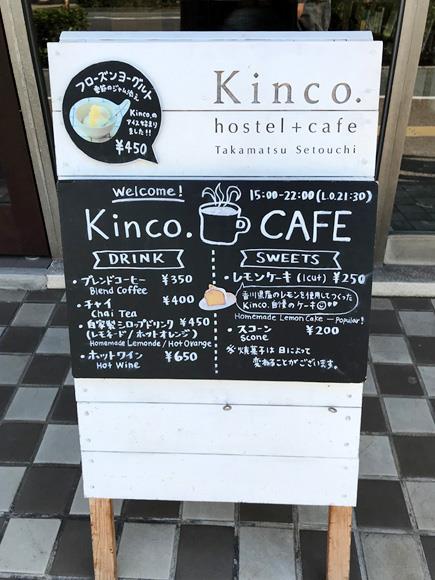 フローズンヨーグルト
季節のジャム添え
Kinco.の
アイス始まり
ました!!
¥450
Kinco.
hostel+cafe
Takamatsu Setouchi
Welcome!
15:00-22:00(L.O.21:30)
Kinco. CAFE
DRINK
・ブレンドコーヒー ¥350
Blend Coffee
・チャイ ¥400
Chai Tea
・自家製シロップドリンク ¥450
(レモネード/ホットオレンジ)
Homemade Lemonde / Hot Orange
・ホットワイン ¥650
Hot Wine
SWEETS
・レモンケーキ (1cut) ¥250
香川県産のレモンを使用してつくった
Kinco.自慢のケーキ
Homemade Lemon Cake — Popular!
・スコーン ¥200
Scone
※焼菓子は日によって
変わることがございます。